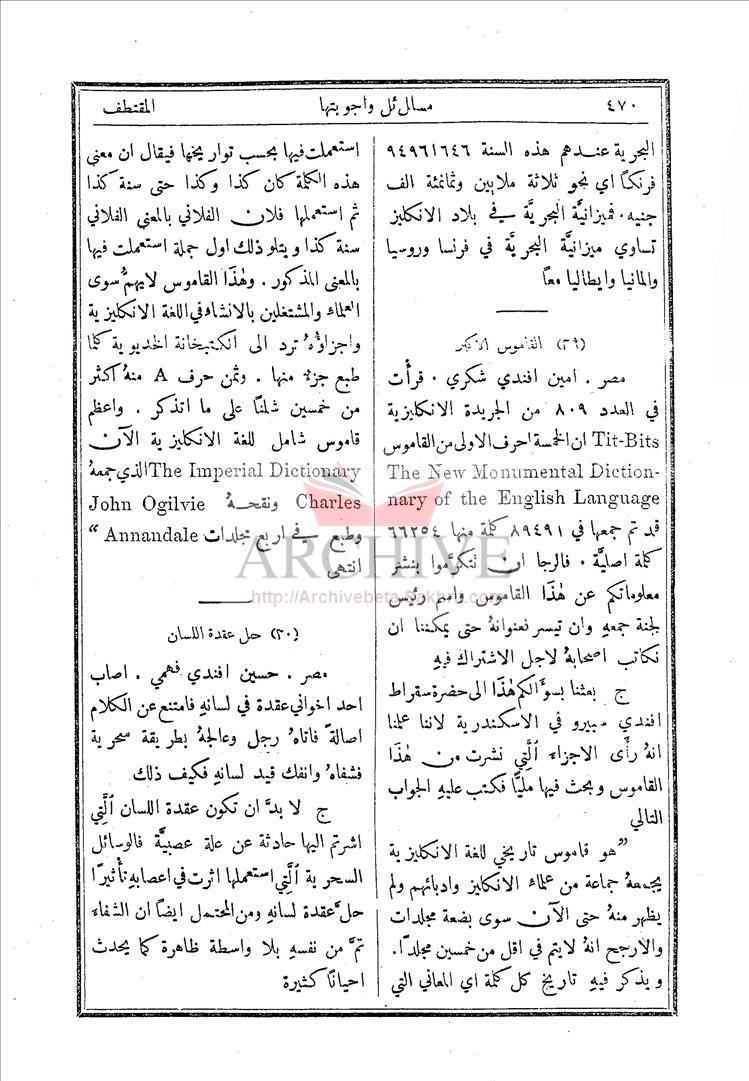 ٤٧٠
مسائل واجوبتها
المقتطف
البحرية عندهم هذه السنة ٩٤٩٦١٦٤٦
فرنكًا اي نحو ثلاثة ملايين وثمانمئة الف
جنيه. فميزانيَّة البحريَّة في بلاد الانكليز
تساوي ميزانيَّة البحريَّة في فرنسا وروسيا
والمانيا وايطاليا معاً
(٢٩) القاموس الاكبر
مصر. امين افندي شكري. قرأْت
في العدد ٨٠٩ من الجريدة الانكليزية
Tit-Bits ان الخمسة احرف الاولى من القاموس
The New Monumental Diction-
nary of the English Language
قد تم جمعها في ٨٩٤٩١ كلمة منها ٦٦٢٥٤
كلمة اصليَّة. فالرجا ان تتكرَّموا بنشر
معلوماتكم عن هٰذا القاموس واسم رئيس
لجنة جمعهِ وان تيسر فعنوانهُ حتى يمكننا ان
نكاتب اصحابهُ لاجل الاشتراك فيهِ
ج بعثنا بسؤَالكم هٰذا الى حضرة سقراط
افندي سبيرو في الاسكندرية لاننا علمنا
انهُ رأَى الاجزاء الَّتِي نشرت من هٰذا
القاموس وبحث فيها مليًّا فكتب عليهِ الجواب
التالي
”هو قاموس تاريخي للغة الانكليزية
يجمعهُ جماعة من علماء الانكليز وادبائهم ولم
يظهر منهُ حتى الآن سوى بضعة مجلدات
والارجح انهُ لايتم في اقل من خمسين مجلدًا.
ويذكر فيهِ تاريخ كل كلمة اي المعاني التي
استعملت فيها بحسب تواريخها فيقال ان معنى
هذه الكلمة كان كذا وكذا حتى سنة كذا
ثم استعملها فلان الفلاني بالمعنى الفلاني
سنة كذا ويتلو ذلك اول جملة استعملت فيها
بالمعنى المذكور. وهٰذا القاموس لايهمُّ سوى
العلماء والمشتغلين بالانشاء في اللغة الانكليزية
واجزاؤُهُ ترد الى الكتبخانة الخديوية كلما
طبع جزءٌ منها. وثمن حرف A منهُ اكثر
من خمسين شلنًا على ما اتذكر. واعظم
قاموس شامل للغة الانكليزية الآن
The Imperial Dictionary الذي جمعهُ
John Ogilvie ونقحهُ Charles
Annandale وطبع في اربع مجلدات “
انتهى
(٣٠) حل عقدة اللسان
مصر. حسين افندي فهمي. اصاب
احد اخواني عقدة في لسانهِ فامتنع عن الكلام
اصالةً فاتاهُ رجل وعالجهُ بطريقة سحرية
فشفاهُ وانفك قيد لسانهِ فكيف ذلك
ج لا بدَّ ان تكون عقدة اللسان الَّتِي
اشرتم اليها حادثة عن علة عصبيَّة فالوسائل
السحرية الَّتِي استعملها اثرت في اعصابهِ تأْثيرًا
حلَّ عقدة لسانهِ ومن المحتمل ايضًا ان الشفاء
تمَّ من نفسهِ بلا واسطة ظاهرة كما يحدث
احيانًا كثيرة
ARCHIVE